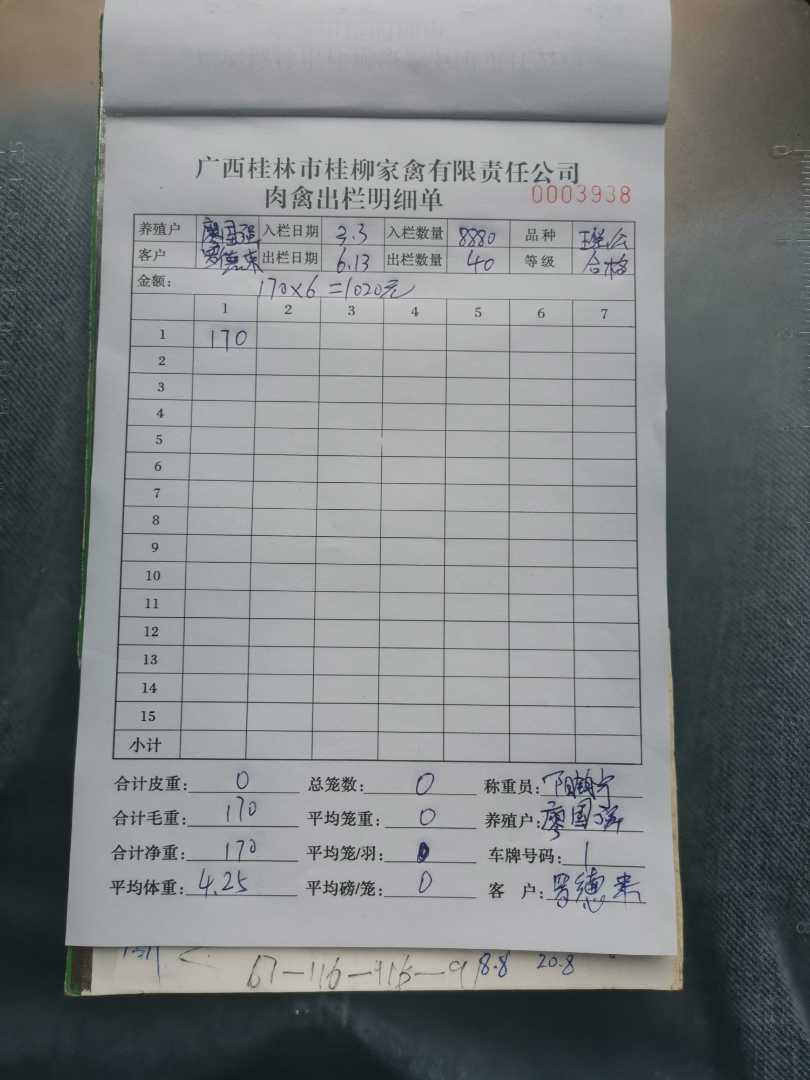 广西桂林市桂柳家禽有限责任公司
肉禽出栏明细单 0003938
养殖户 廖国强 入栏日期 3.3 入栏数量 8880 品种
客户 罗德来 出栏日期 6.13 出栏数量 40 等级 合格
金额: 170×6=1020元
1 2 3 4 5 6 7
1 170
2
3
4
5
6
7
8
9
10
11
12
13
14
15
小计
合计皮重: 0 总笼数: 0 称重员:
合计毛重: 170 平均笼重: 0 养殖户: 廖国强
合计净重: 170 平均笼/羽: 0 车牌号码: 1
平均体重: 4.25 平均磅/笼: 0 客户: 罗德来
67-116-916-9 8.8 20.8